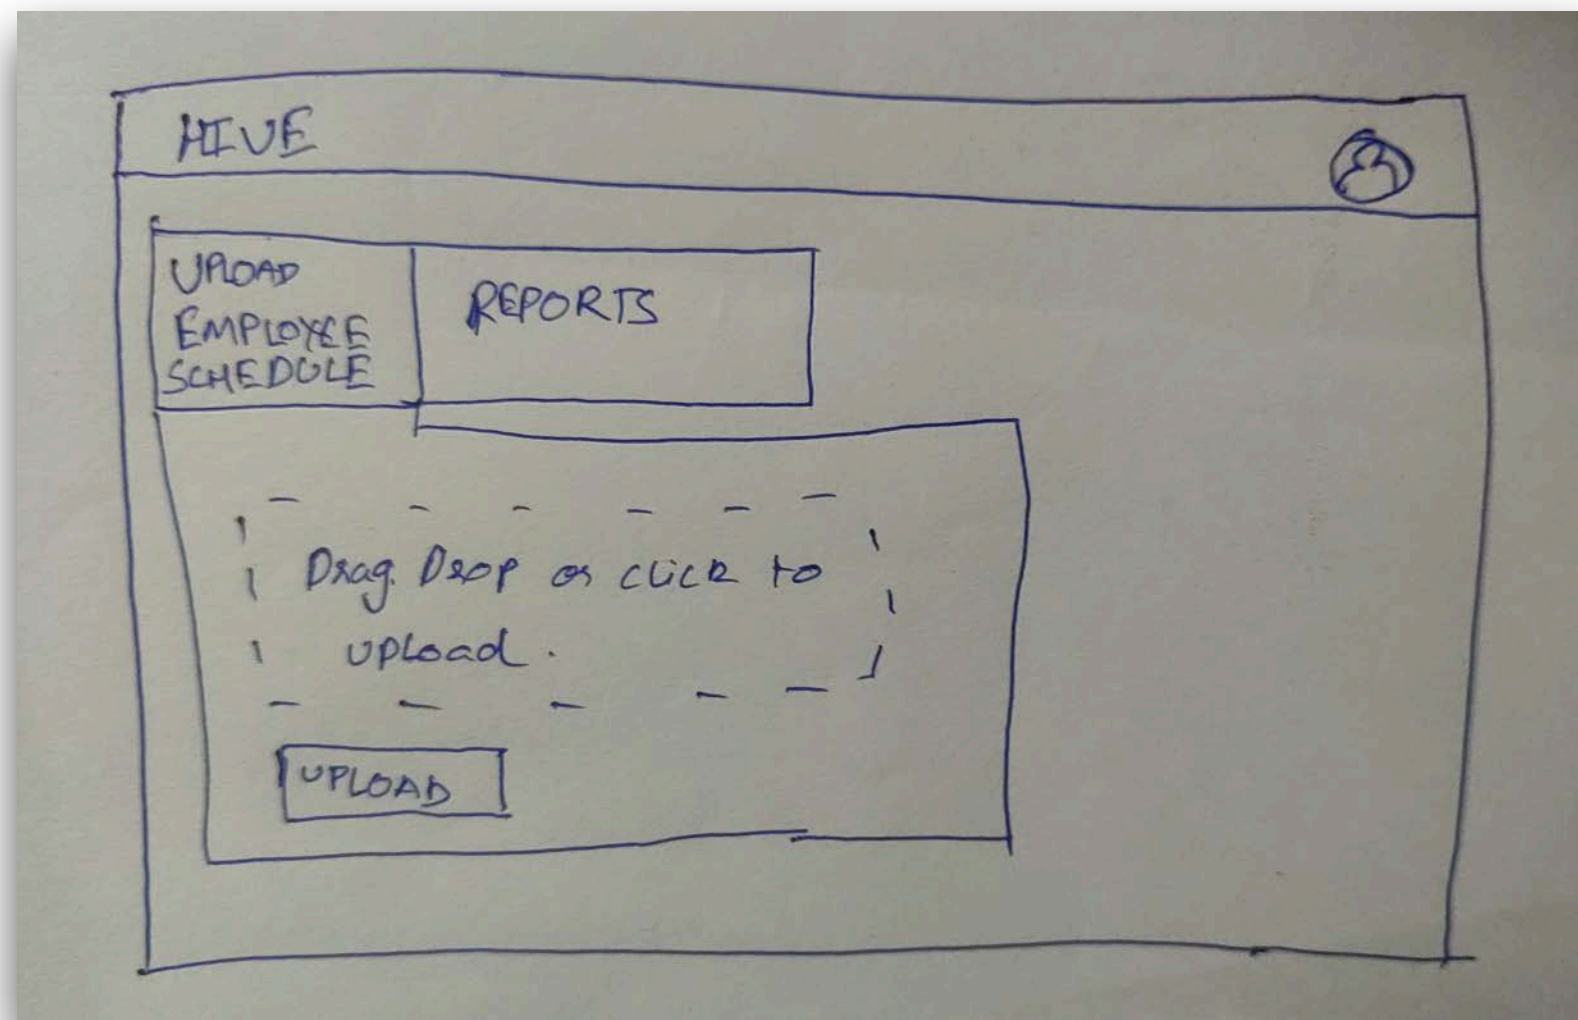 HIVE
UPLOAD
EMPLOYEE
SCHEDULE
REPORTS
Drag. Drop or click to
upload.
UPLOAD